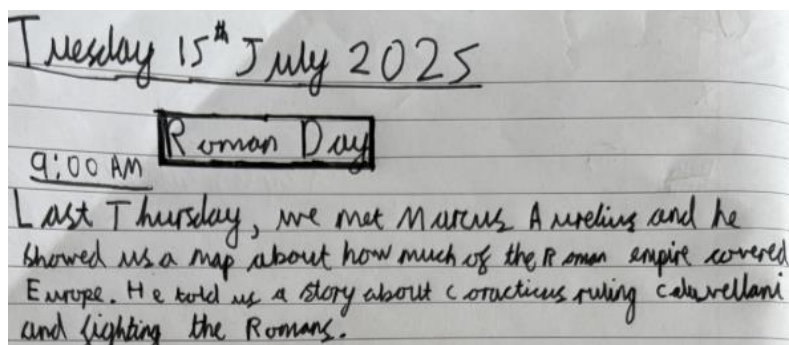 Tuesday 15th July 2025
Roman Day
9:00 AM
Last Thursday, we met Marcus Aurelius and he
showed us a map about how much of the Roman empire covered
Europe. He told us a story about Coracticus ruling
and fighting the Romans.